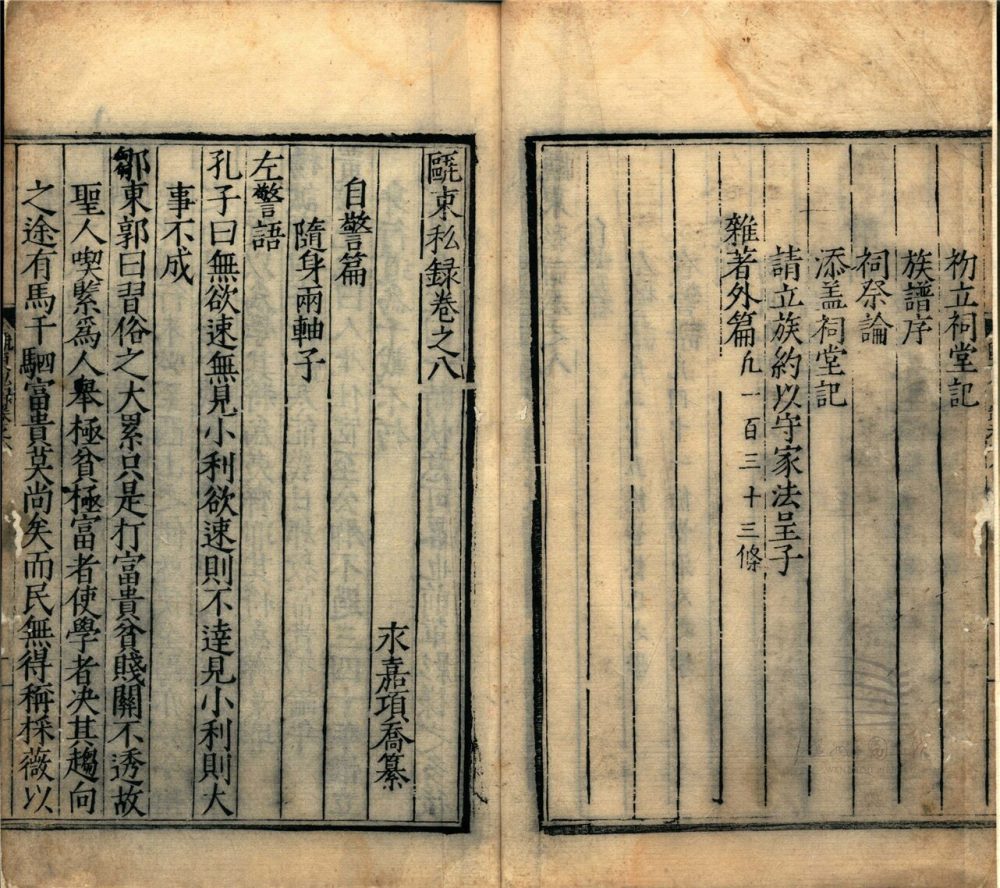 刱立祠堂記
族譜序
祠祭論
添盖祠堂記
請立族約以守家法呈子
雜著外篇凢一百三十三條
甌東私録卷之八
永嘉項喬纂
自警篇
隨身兩軸子
左警語
孔子曰無欲速無見小利欲速則不達見小利則大
事不成
鄒東郭曰習俗之大累只是打富貴貧賤關不透故
聖人喫緊爲人舉極貧極富者使學者决其趨向
之途有馬千駟富貴莫尚矣而民無得稱採薇以